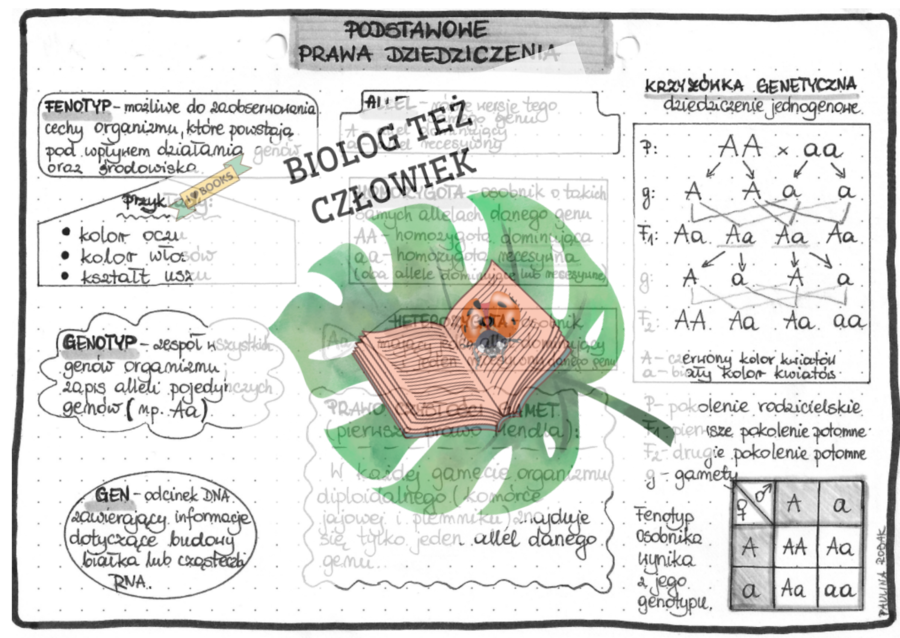 PODSTAWOWE
PRAWA DZIEDZICZENIA
FENOTYP - możliwe do zaobserwowania
cechy organizmu, które powstają
pod wpływem działania genów
oraz środowiska.
Przykłady:
• kolor oczu
• kolor włosów
• kształt uszu
GENOTYP - zespół wszystkich
genów organizmu.
zapis alleli pojedynczych
genów (np. Aa)
GEN - odcinek DNA
zawierający informacje
dotyczące budowy
białka lub cząsteczki
RNA.
I ♥ BOOKS
BIOLOG TEŻ
CZŁOWIEK
ALLEL - różne wersje tego
samego genu
A - allel dominujący
a - allel recesywny
HOMOZYGOTA - osobnik o takich
samych allelach danego genu
AA - homozygota dominująca
aa - homozygota recesywna
(oba allele dominujące lub recesywne)
HETEROZYGOTA - osobnik
dominujący
danego genu
PRAWO CZYSTOŚCI GAMET
(pierwsze prawo Mendla):
W każdej gamecie organizmu
diploidalnego (komórce
jajowej i plemniku) znajduje
się tylko jeden allel danego
genu.
KRZYŻÓWKA GENETYCZNA
dziedziczenie jednogenowe
P: AA × aa
g: A A a a
F1: Aa Aa Aa Aa
g: A a A a
F2: AA Aa Aa aa
A - czerwony kolor kwiatów
a - biały kolor kwiatów
P - pokolenie rodzicielskie
F1 - pierwsze pokolenie potomne
F2 - drugie pokolenie potomne
g - gamety
Fenotyp
osobnika
wynika
z jego
genotypu.
♀ ♂ A a
A AA Aa
a Aa aa
PAULINA ZODAK